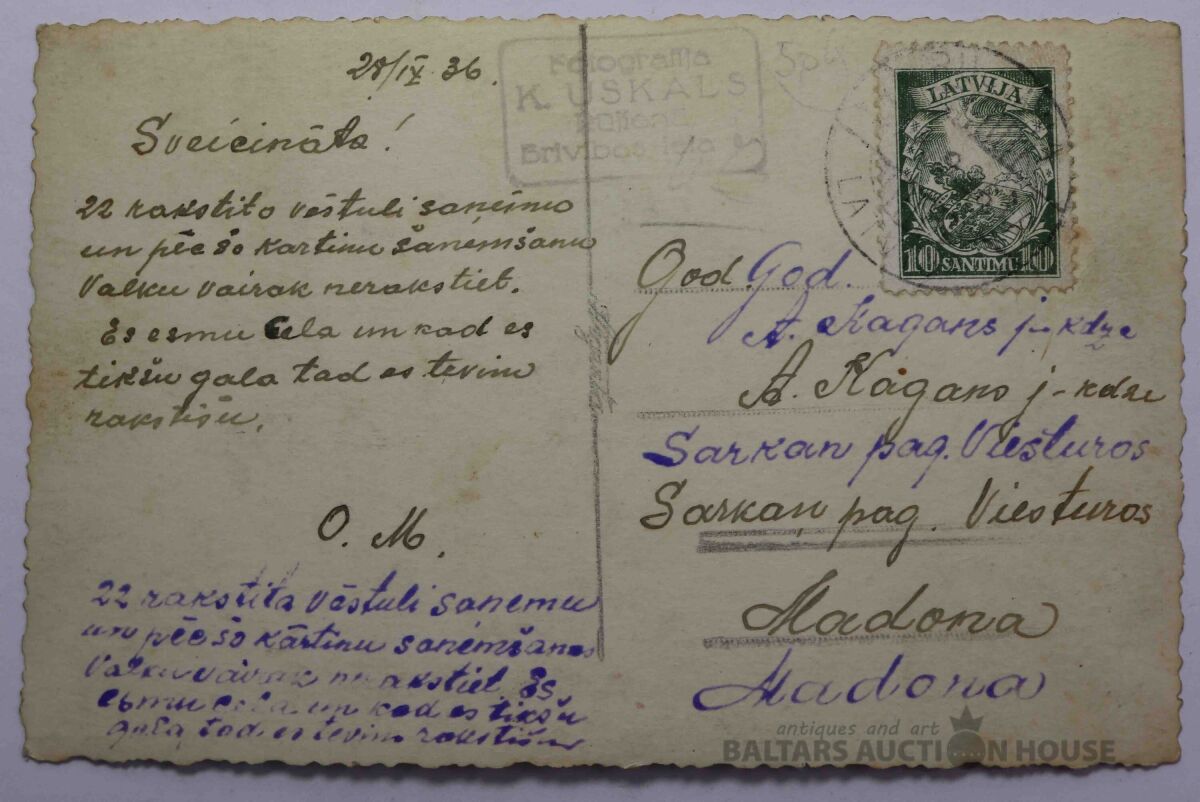 28/IX 36.
Sveicināta!
22 rakstito vēstuli saņēmu
un pēc šo kartinu saņemšanu
Valku vairak nerakstiet.
Es esmu cela un kad es
tikšu gala tad es tevim
rakstišu.
O. M.
22 rakstita vēstuli saņemu
un pēc šo kārtinu saņemšanas
Valku vairak nerakstiet. Es
esmu cela un kad es tikšu
gala, tad es tevim rakstišu
Fotografija
K. USKALS
Rūjienā
Brīvības iela
LATVIJA
10 SANTIMU 10
God. God.
A. Kagans j-kdze
A. Kagans j-kdze
Sarkan pag. Viesturos
Sarkaņ pag. Viesturos
Madona
Madona
antiques and art
BALTARS AUCTION HOUSE